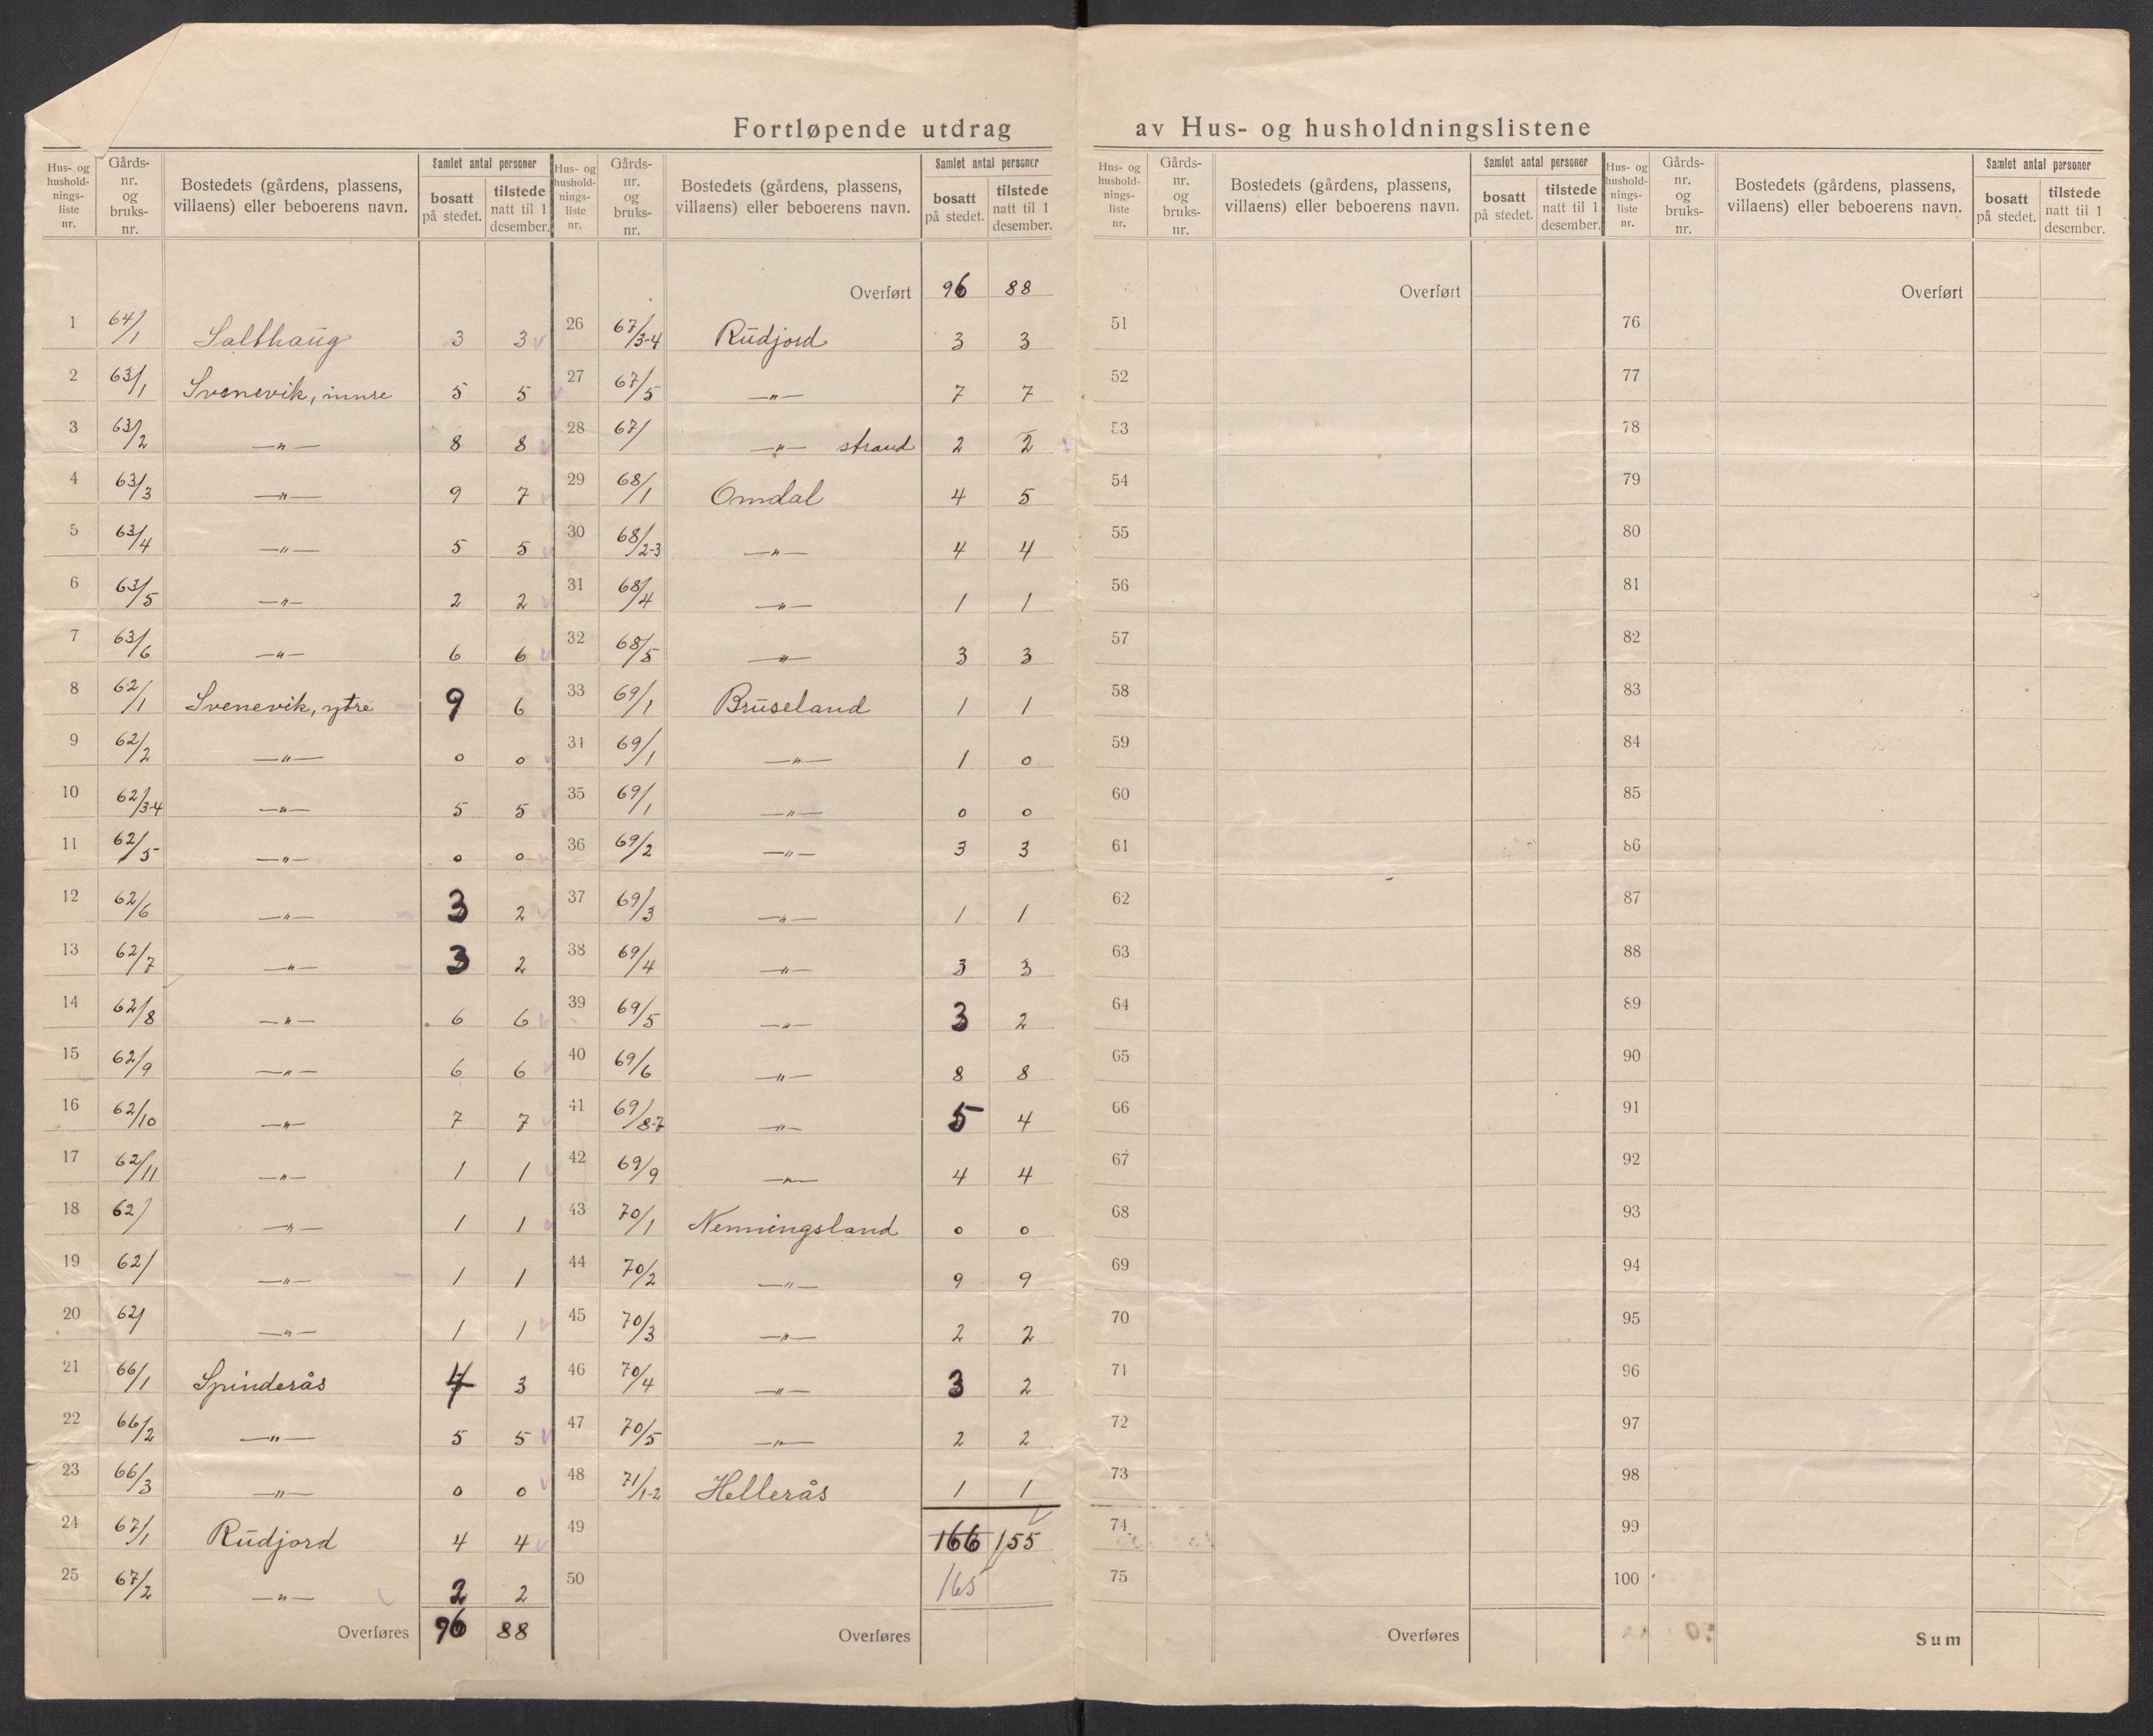 Fortløpende utdrag av Hus- og husholdningslistene
Hus- og hushold-nings-liste nr. | Gårds-nr. og bruks-nr. | Bostedets (gårdens, plassens, villaens) eller beboerens navn. | Samlet antal personer | bosatt på stedet. | tilstede natt til 1 desember.
1 64/1 Salthaug 3 3
2 63/1 Svenevik, innre 5 5
3 63/2 —"— 8 8
4 63/3 —"— 9 7
5 63/4 —"— 5 5
6 63/5 —"— 2 2
7 63/6 —"— 6 6
8 62/1 Svenevik, ytre 9 6
9 62/2 —"— 0 0
10 62/3-4 —"— 5 5
11 62/5 —"— 0 0
12 62/6 —"— 3 2
13 62/7 —"— 3 2
14 62/8 —"— 6 6
15 62/9 —"— 6 6
16 62/10 —"— 7 7
17 62/11 —"— 1 1
18 62/ —"— 1 1
19 62/ —"— 1 1
20 62/ —"— 1 1
21 66/1 Spinderås 4 3
22 66/2 —"— 5 5
23 66/3 —"— 0 0
24 67/1 Rudjord 4 4
25 67/2 —"— 2 2
Overføres 96 88
Hus- og hushold-nings-liste nr. | Gårds-nr. og bruks-nr. | Bostedets (gårdens, plassens, villaens) eller beboerens navn. | Samlet antal personer | bosatt på stedet. | tilstede natt til 1 desember.
Overført 96 88
26 67/3-4 Rudjord 3 3
27 67/5 —"— 7 7
28 67/ —"— strand 2 2
29 68/1 Omdal 4 5
30 68/2-3 —"— 4 4
31 68/4 —"— 1 1
32 68/5 —"— 3 3
33 69/1 Bruseland 1 1
34 69/1 —"— 1 0
35 69/1 —"— 0 0
36 69/2 —"— 3 3
37 69/3 —"— 1 1
38 69/4 —"— 3 3
39 69/5 —"— 3 2
40 69/6 —"— 8 8
41 69/8-7 —"— 5 4
42 69/9 —"— 4 4
43 70/1 Nenningsland 0 0
44 70/2 —"— 9 9
45 70/3 —"— 2 2
46 70/4 —"— 3 2
47 70/5 —"— 2 2
48 71/1-2 Hellerås 1 1
49 166 155
50 165
Overføres
Hus- og hushold-nings-liste nr. | Gårds-nr. og bruks-nr. | Bostedets (gårdens, plassens, villaens) eller beboerens navn. | Samlet antal personer | bosatt på stedet. | tilstede natt til 1 desember.
Overført
51
52
53
54
55
56
57
58
59
60
61
62
63
64
65
66
67
68
69
70
71
72
73
74
75
Overføres
Hus- og hushold-nings-liste nr. | Gårds-nr. og bruks-nr. | Bostedets (gårdens, plassens, villaens) eller beboerens navn. | Samlet antal personer | bosatt på stedet. | tilstede natt til 1 desember.
Overført
76
77
78
79
80
81
82
83
84
85
86
87
88
89
90
91
92
93
94
95
96
97
98
99
100
Sum